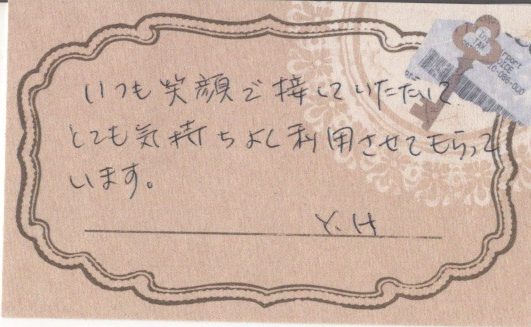 いつも笑顔で接していただいて
とても気持ちよく利用させてもらって
います。
Y.H